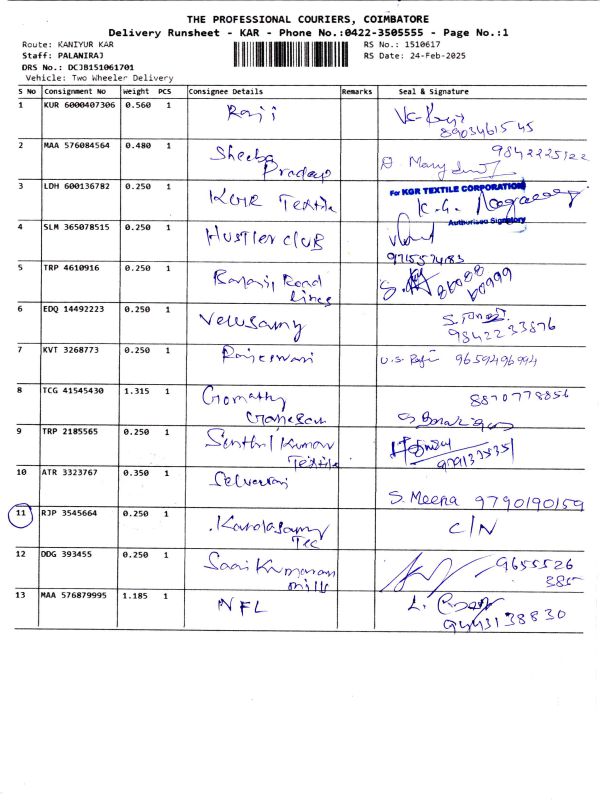 THE PROFESSIONAL COURIERS, COIMBATORE
Delivery Runsheet - KAR - Phone No.:0422-3505555 - Page No.:1
Route: KANIYUR KAR
RS No.: 1510617
Staff: PALANIRAJ
RS Date: 24-Feb-2025
DRS No.: DCJB151061701
Vehicle: Two Wheeler Delivery
S No Consignment No Weight PCS Consignee Details Remarks Seal & Signature
1 KUR 6000407306 0.560 1 Raji
8903461545
2 MAA 576084564 0.480 1 Sheeba Mary
Pradeep
3 LDH 600136782 0.250 1 KGR Textile
For KGR TEXTILE CORPORATION
K.G.
Authorised Signatory
4 SLM 365078515 0.250 1 Hustler club
9715574183
5 TRP 4610916 0.250 1 Balaji Road
Lines
6 EDQ 14492223 0.250 1 Velusamy
9842233876
7 KVT 3268773 0.250 1 Rajeswari 9659496994
8 TCG 41545430 1.315 1 Gomathy 8870778856
Ganesan
9 TRP 2185565 0.250 1 Senthil Kumar
Textile
10 ATR 3323767 0.350 1 Selvarani
S. Meena 9790190159
11 RJP 3545664 0.250 1 Kandasamy C/N
Tec
12 DDG 393455 0.250 1 Saai Kumaran 9655526
mills 385
13 MAA 576879995 1.185 1 NFL L.
9443138830